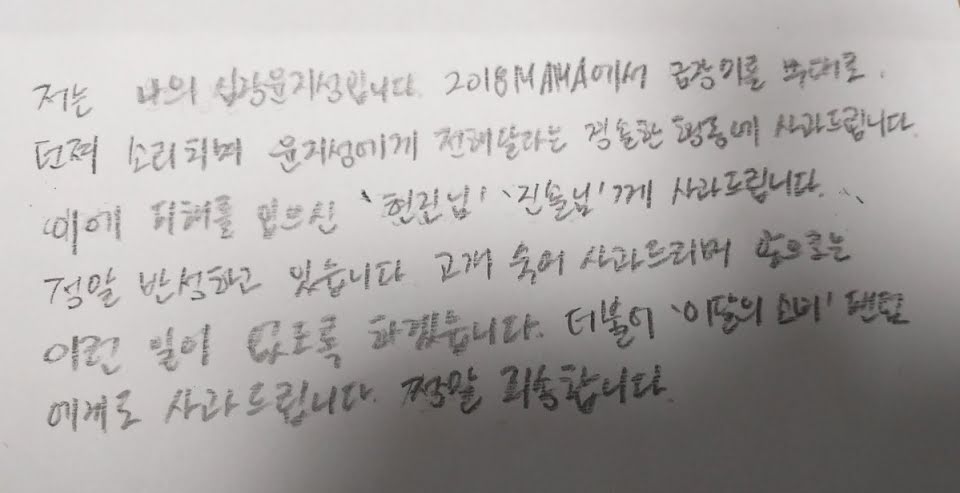 저는 나의 심장윤지성입니다. 2018MAMA에서 금장미를 무대로
던져 소리치며 윤지성에게 전해달라는 경솔한 행동에 사과드립니다.
이에 피해를 입으신 '현진님' '진솔님'께 사과드립니다.
정말 반성하고 있습니다 고개 숙여 사과드리며 앞으로는
이런 일이 없도록 하겠습니다. 더불어 '이달의 소녀' 팬분
에게도 사과드립니다. 정말 죄송합니다.